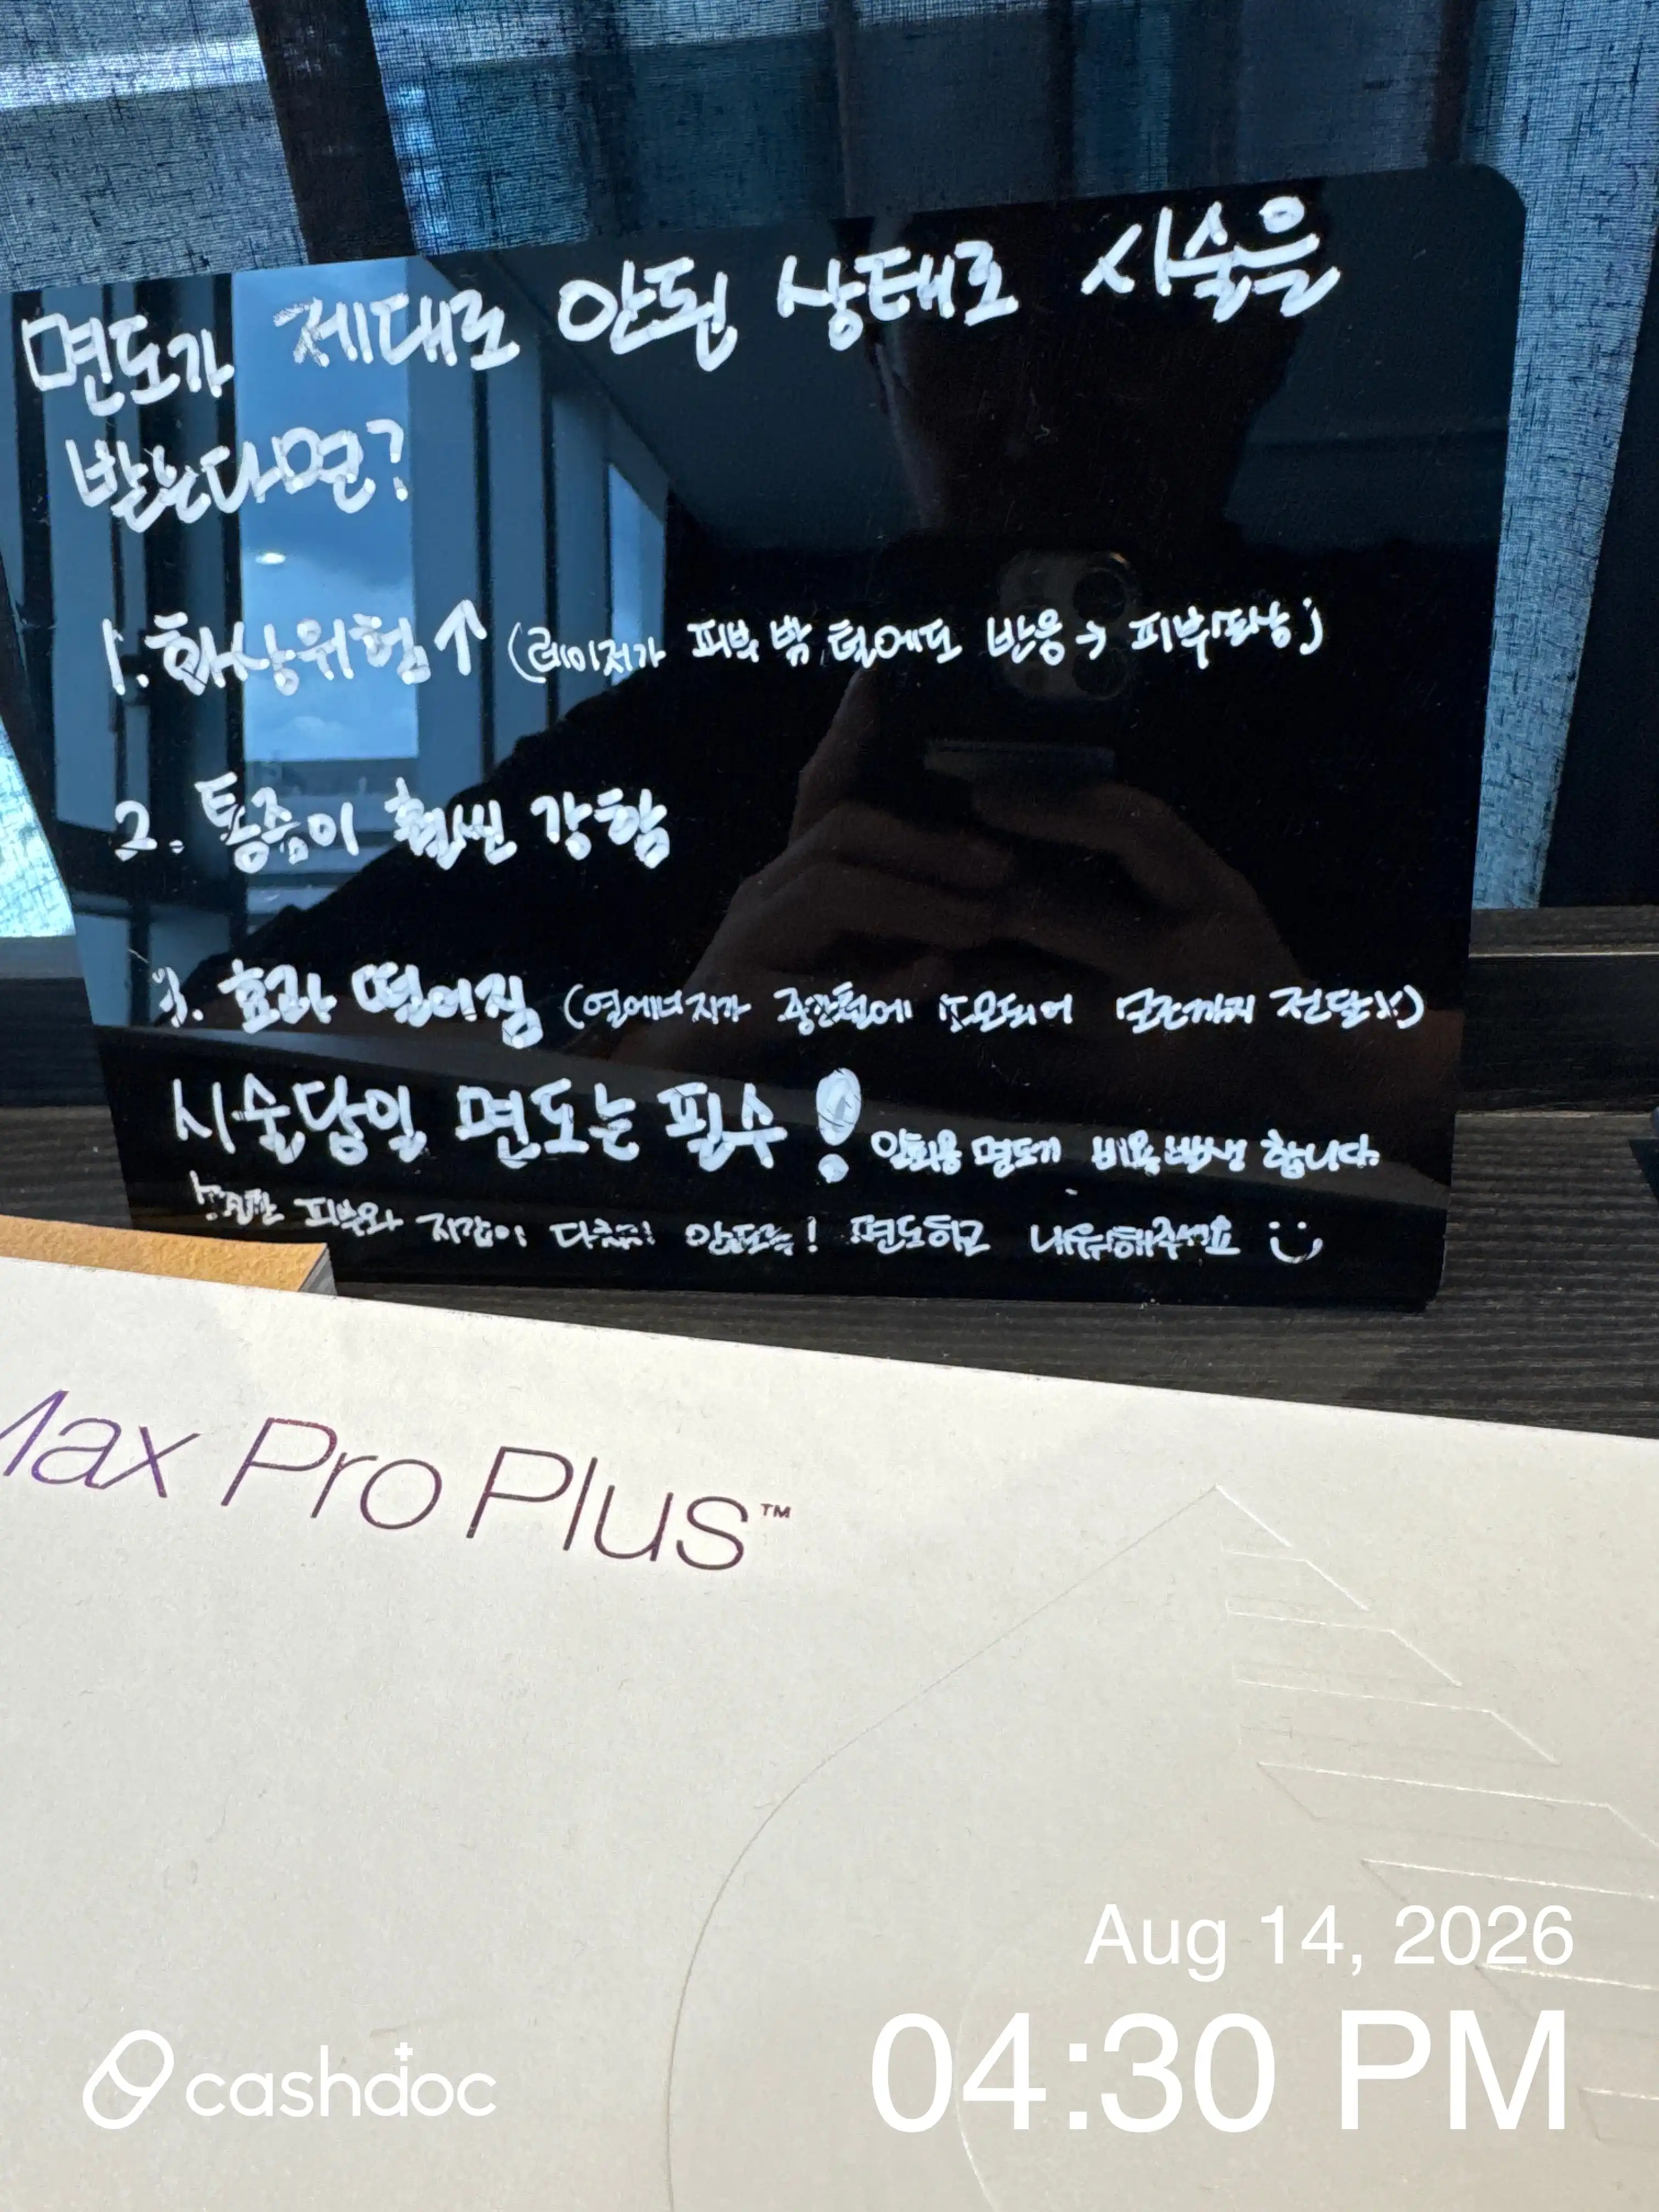 면도가 제대로 안된 상태로 시술을
받는다면?
1. 화상위험↑ (레이저가 피부 밖 털에도 반응→ 피부손상)
2. 통증이 훨씬 강함
3. 효과 떨어짐 (열에너지가 중간털에 소모되어 모근까지 전달X)
시술당일 면도는 필수! 일회용 면도기 비용발생 합니다.
피부와 시간이 다쳐요! 안돼요! 면도하고 내원해주세요
Max Pro Plus™
Aug 14, 2026
04:30 PM
cashdoc